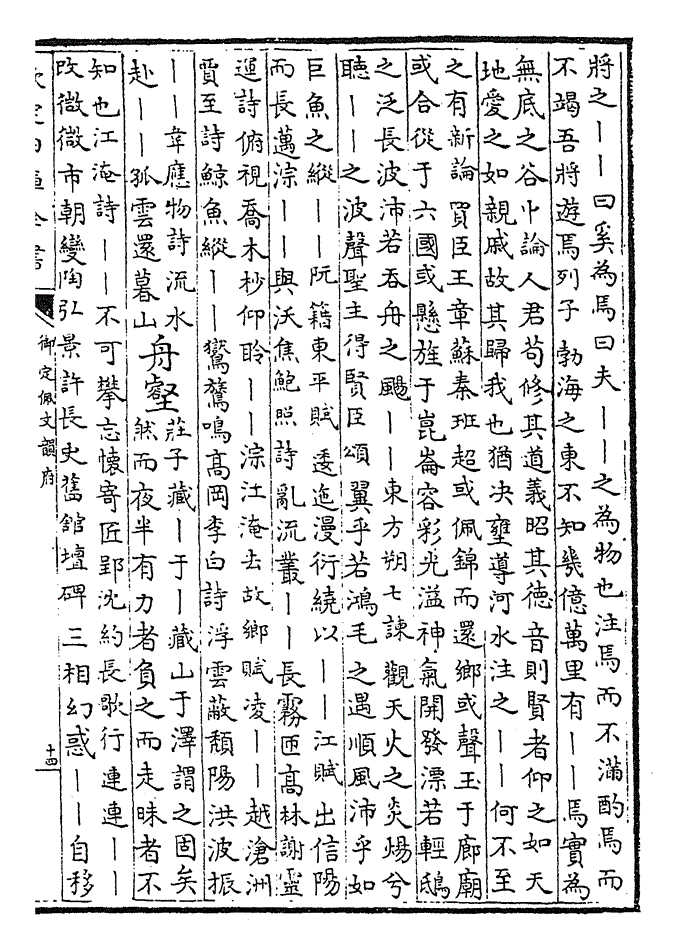 將之丨丨曰奚為焉曰夫丨丨之為物也注焉而不滿酌焉而
不竭吾將遊焉列子勃海之東不知幾億萬里有丨丨焉實為
無底之谷中論人君苟修其道義昭其德音則賢者仰之如天
地愛之如親戚故其歸我也猶決壅導河水注之丨丨何不至
之有新論買臣王章蘇秦班超或佩錦而還鄉或聲玉于廊廟
或合從于六國或懸旌于崑崙容彩光溢神氣開發漂若輕鴟
之泛長波沛若吞舟之颺丨丨東方朔七諫觀天火之炎煬兮
聽丨丨之波聲聖主得賢臣頌翼乎若鴻毛之遇順風沛乎如
巨魚之縱丨丨阮籍東平賦逶迤漫衍繞以丨丨江賦出信陽
而長邁淙丨丨與沃焦鮑照詩亂流叢丨丨長霧匝高林謝靈
運詩俯視喬木杪仰聆丨丨淙江淹去故鄉賦凌丨丨越滄洲
賈至詩鯨魚縱丨丨鸑鷟鳴高岡李白詩浮雲蔽頹陽洪波振
丨丨韋應物詩流水
赴丨丨孤雲還暮山
舟壑
莊子藏丨于丨藏山于澤謂之固矣
然而夜半有力者負之而走昧者不
知也江淹詩丨丨不可攀忘懷寄匠郢沈約長歌行連連丨丨
改微微市朝變陶弘景許長史舊館壇碑三相幻惑丨丨自移
御定佩文韻府
十四